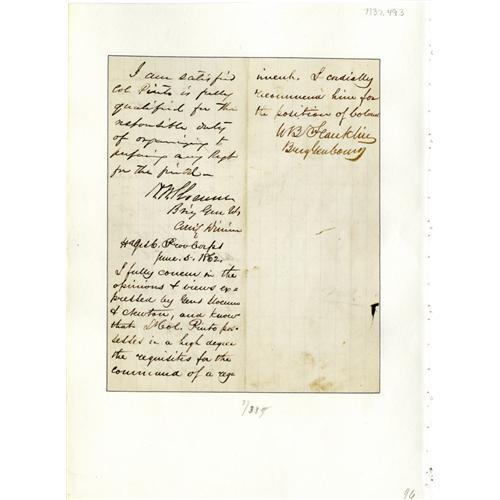 7137.493
I am satisfied
Col Pinto is fully
qualified for the
responsible duty
of organizing &
any Regt
for the
H. W. Slocum
Brig Gen Vs
Comg Division
Hd Qrs 6. Prov Corps
June. 5. 1862.
I fully concur in the
opinions & views ex-
pressed by Genls Slocum
& Newton, and know
that Lt Col. Pinto pos-
sesses in a high degree
the requisites for the
command of a reg-
iment. I cordially
recommend him for
the position of Colonel
W B Franklin
Brig Gen Comdg
96